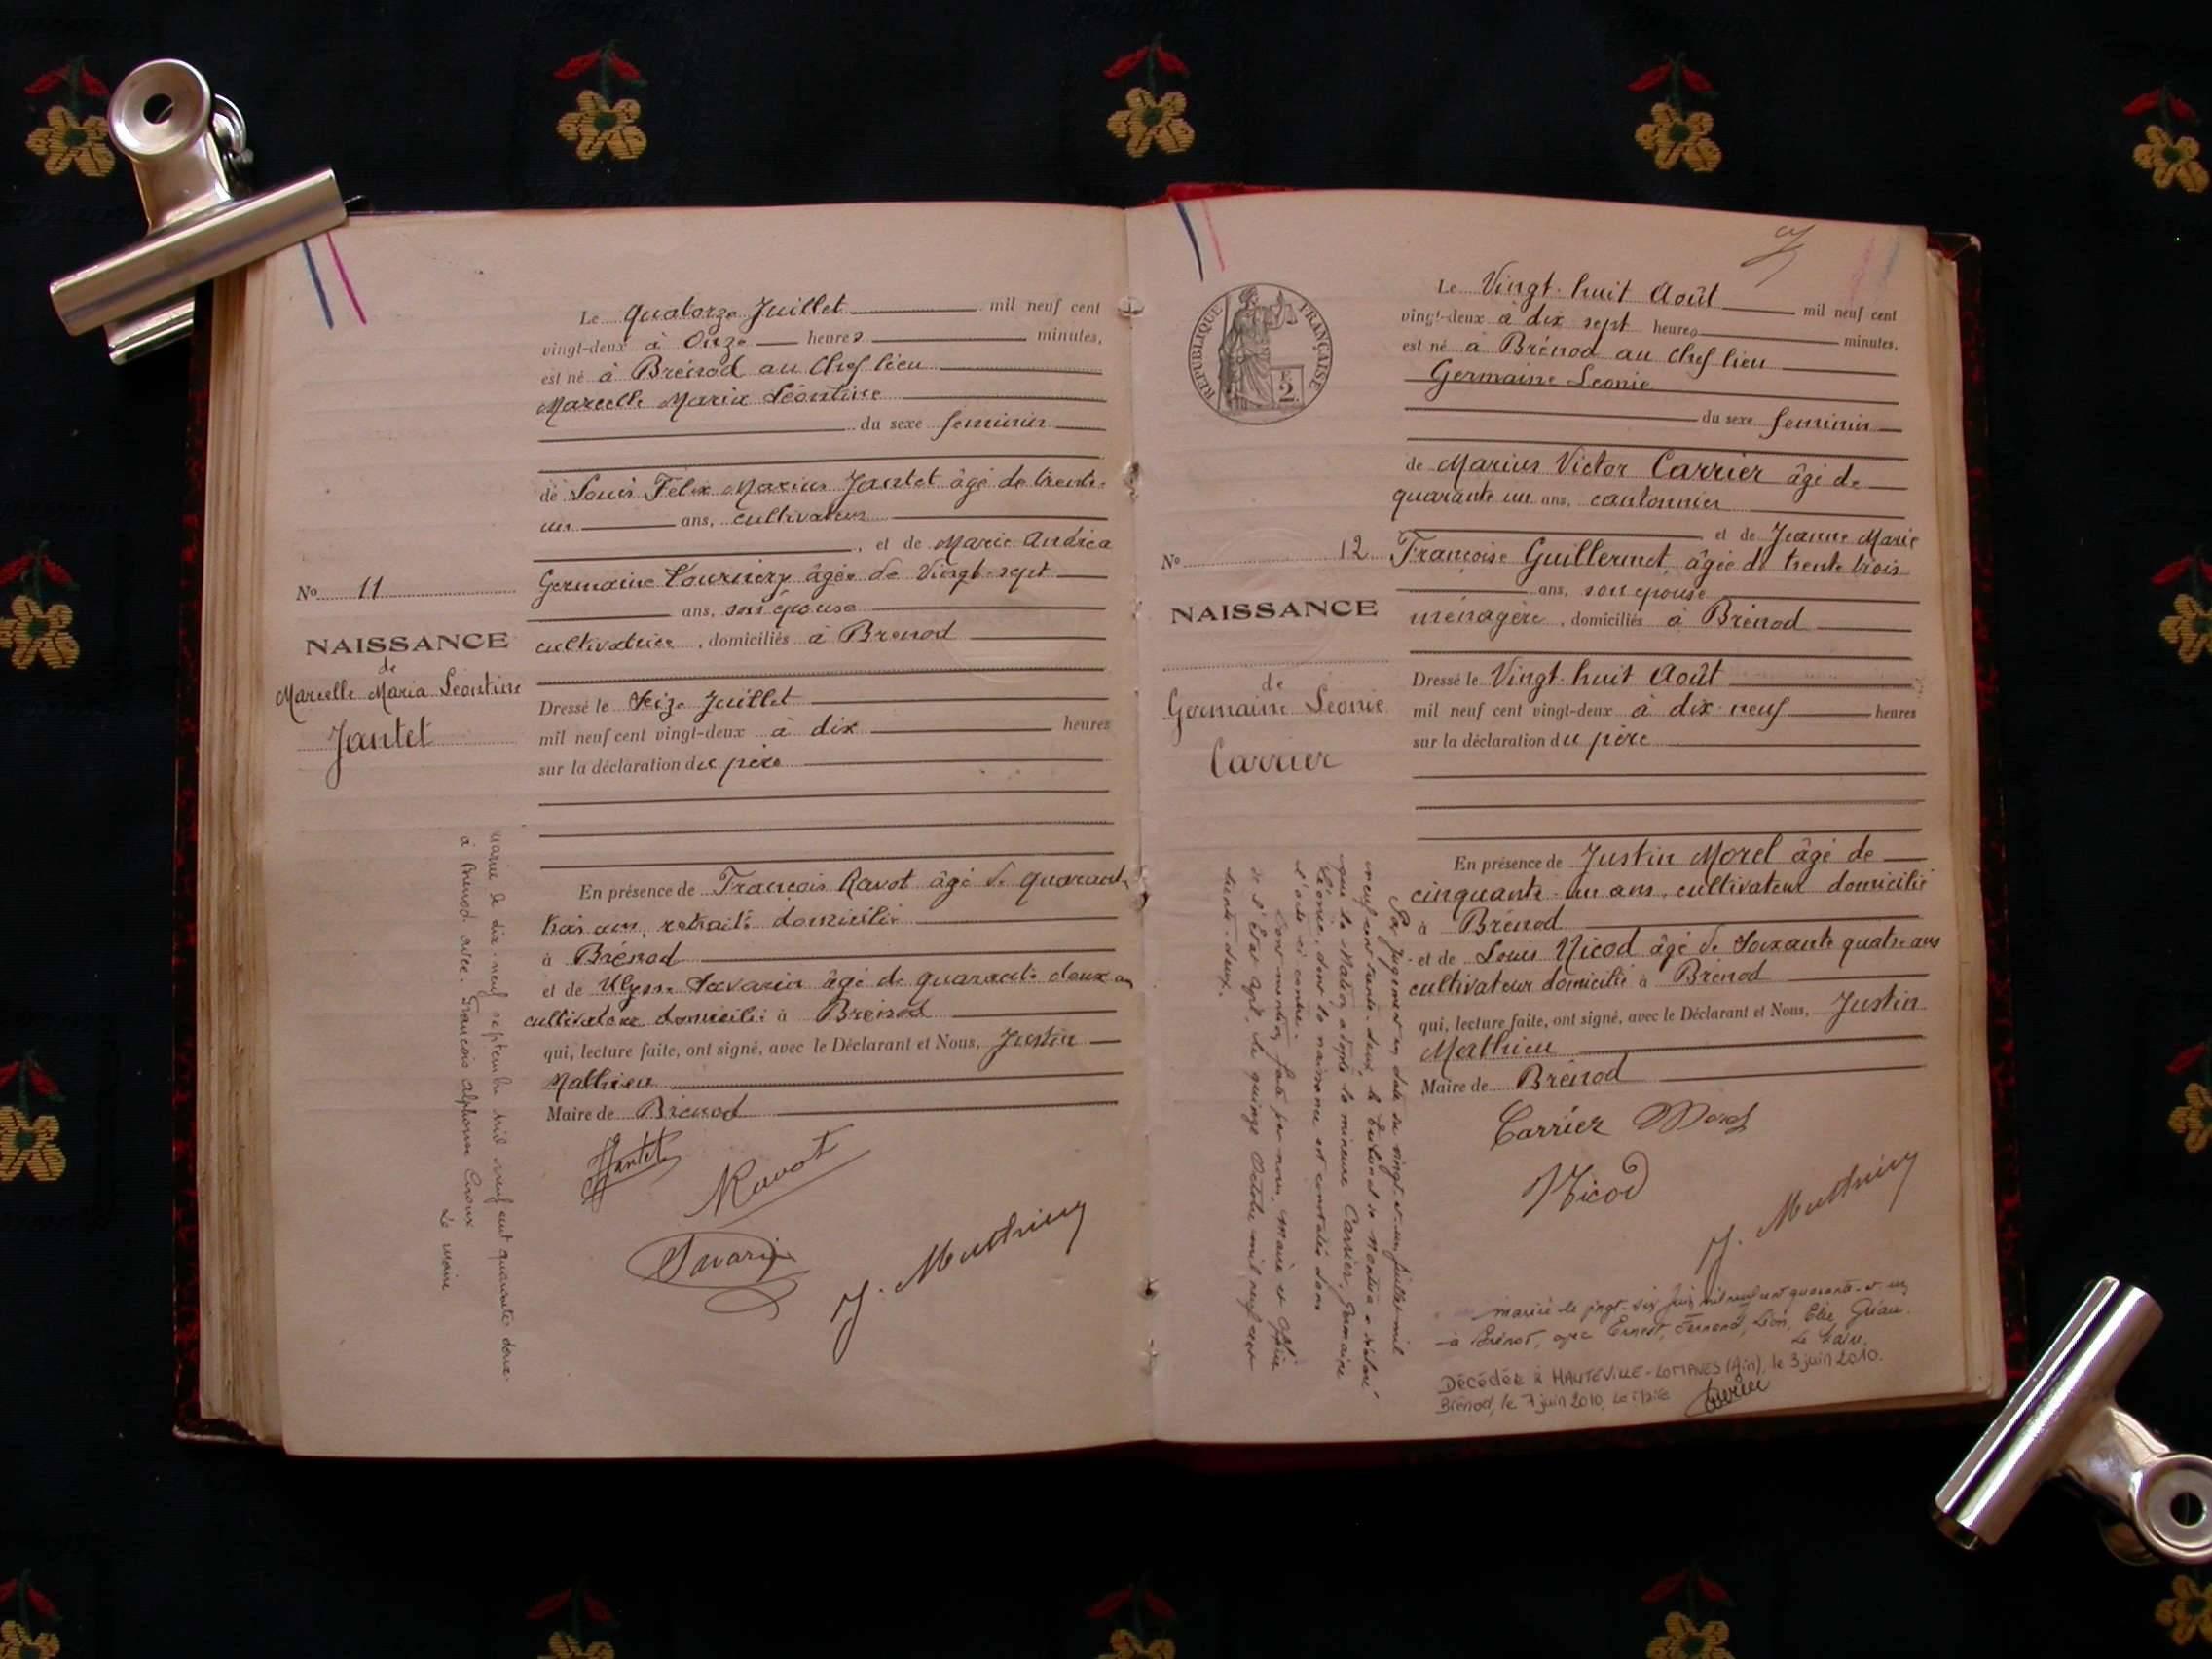 Le Quatorze Juillet mil neuf cent
vingt-deux à Onze heures minutes,
est né à Brénod au Chef lieu
Marcelle Maria Léontine
du sexe feminin
de Louis Félix Marius Jantet âgé de trente-
un ans, cultivateur
, et de Marie Andréa
Germaine Tournery âgée de Vingt-sept
ans, son épouse
cultivatrice, domiciliés à Brénod
Dressé le Seize Juillet
mil neuf cent vingt-deux à dix heures
sur la déclaration du père
En présence de François Ravot âgé de quarante
trois ans, retraité domicilié
à Brénod
et de Ulysse Savarin âgé de quarante deux an
cultivateur domicilié à Brénod
qui, lecture faite, ont signé, avec le Déclarant et Nous, Justin
Mathieu
Maire de Brénod
Jantet
Ravot
Savarin
J. Mathieu
No 11
NAISSANCE
de
Marcelle Maria Léontine
Jantet
Mariée le dix-neuf septembre mil neuf cent quarante deux
à Brénod avec François Alphonse
Le maire
RÉPUBLIQUE FRANÇAISE
2
Le Vingt-huit Août mil neuf cent
vingt-deux à dix sept heures minutes,
est né à Brénod au Chef lieu
Germaine Leonie
du sexe feminin
de Marius Victor Carrier âgé de
quarante un ans, cantonnier
et de Jeanne Marie
Françoise Guillermet, âgée de trente trois
ans, son épouse
ménagère, domiciliés à Brénod
Dressé le Vingt-huit Août
mil neuf cent vingt-deux à dix-neuf heures
sur la déclaration du père
En présence de Justin Morel âgé de
cinquante-un ans, cultivateur domicilié
à Brénod
et de Louis Nicod âgé de Soixante quatre ans
cultivateur domicilié à Brénod
qui, lecture faite, ont signé, avec le Déclarant et Nous, Justin
Mathieu
Maire de Brénod
Carrier Morel
Nicod
J. Mathieu
No 12
NAISSANCE
de
Germaine Leonie
Carrier
Par jugement en date du vingt-et-un juillet mil
neuf cent trente-deux, le tribunal de Nantua a déclaré
que la Nation adopte la mineure Carrier, Germaine
Léonie, dont la naissance est constatée dans
l'acte ci-contre.
Dont mention faite par nous, Maire et Officier
de l'Etat Civil, le quinze Octobre mil neuf cent
trente-deux.
mariée le vingt-six Juin mil neuf cent quarante-et-un
à Brénod, avec Ernest, Fernand, Léon, Elie Gréau.
Le Maire.
Décédée à HAUTEVILLE-LOMPNES (Ain), le 3 juin 2010.
Brénod, le 7 juin 2010, Le Maire